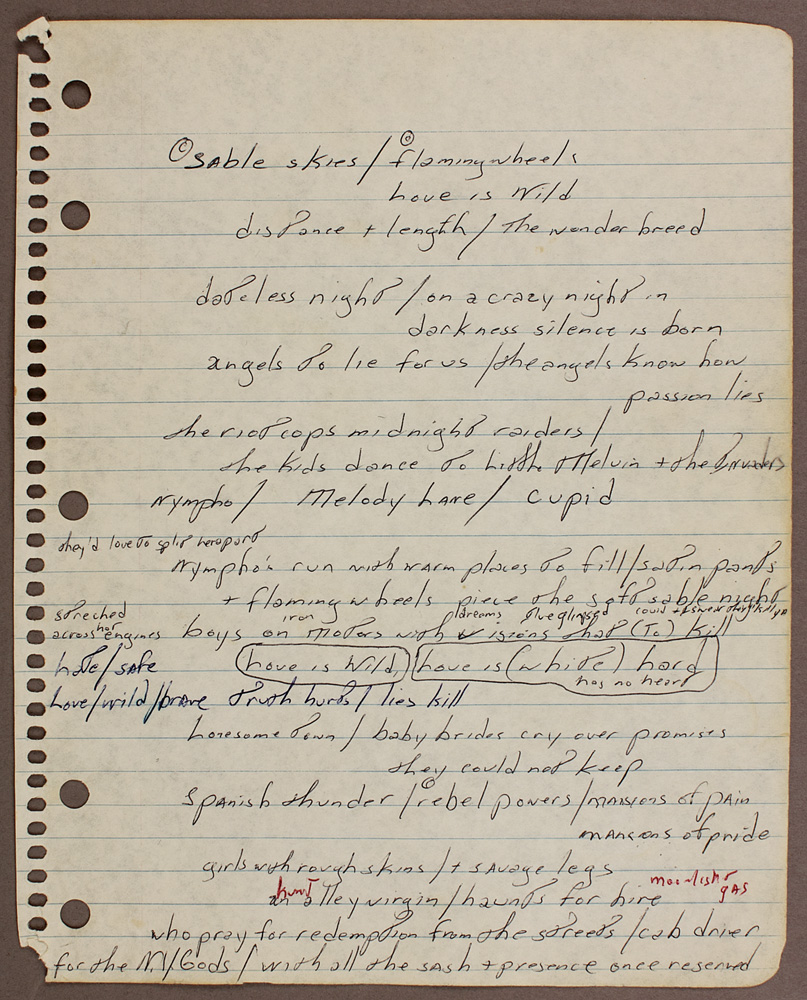 © sable skies / © flaming wheels
Love is Wild
distance + length / The wonder breed
dateless night / on a crazy night in
darkness silence is born
angels to lie for us / the angels know how
passion lies
the riot cops midnight raiders /
the kids dance to Little Melvin + the Invaders
Nympho / Melody Lane / Cupid
they'd love to split her apart
Nympho's run with warm places to fill / satin pants
+ flaming wheels pierce the soft sable night
streched iron dreams blue glinged could
across hot engines boys on motors with visions that (To) kill
hate / safe (Love is Wild) Love is (white) hard
has no heart
Love / wild / brave Truth hurts / lies kill
Lonesome Town / baby brides cry over promises
they could not keep
Spanish thunder / © rebel powers / mansions of pain
mansions of pride
girls with rough skins / + savage legs
hunt moonlight
alley virgin / haunts for hire gas
who pray for redemption from the streets / cab driver
for the NY / Gods / with all the sash + presence once reserved